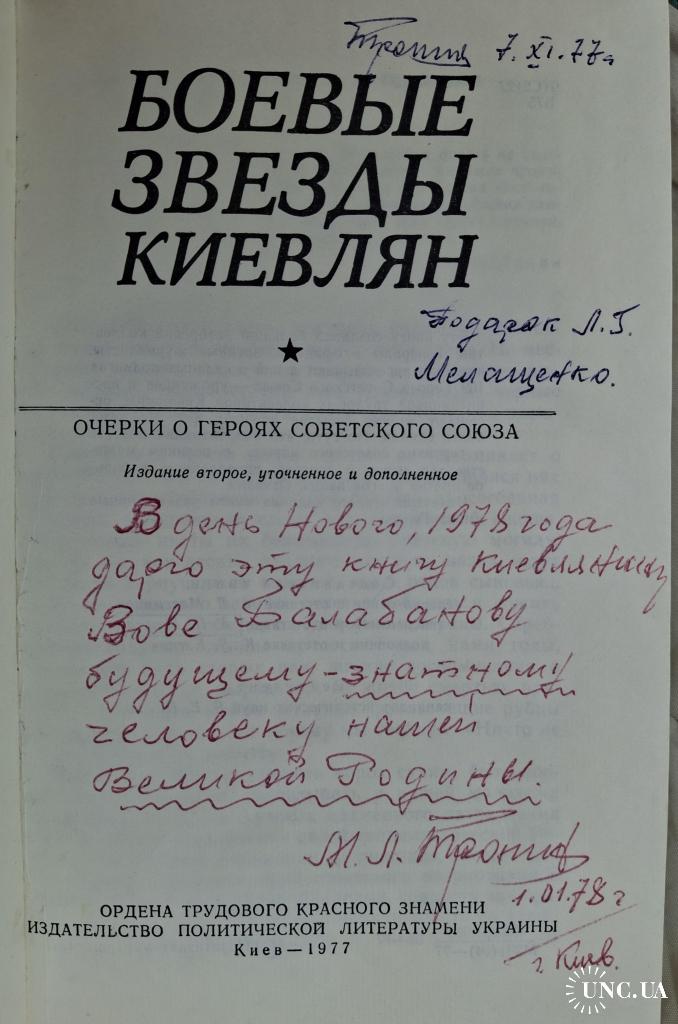 Тронид 7.XI.77г
БОЕВЫЕ
ЗВЕЗДЫ
КИЕВЛЯН
Подарок Л.Г.
Мелащенко.
ОЧЕРКИ О ГЕРОЯХ СОВЕТСКОГО СОЮЗА
Издание второе, уточненное и дополненное
В день Нового, 1978 года
дарю эту книгу киевлянину
Вове Балабанову
будущему-знатному
человеку нашей
Великой Родины.
М. Л.
1.01.78 г
г. Киев.
ОРДЕНА ТРУДОВОГО КРАСНОГО ЗНАМЕНИ
ИЗДАТЕЛЬСТВО ПОЛИТИЧЕСКОЙ ЛИТЕРАТУРЫ УКРАИНЫ
Киев—1977
UNC.UA